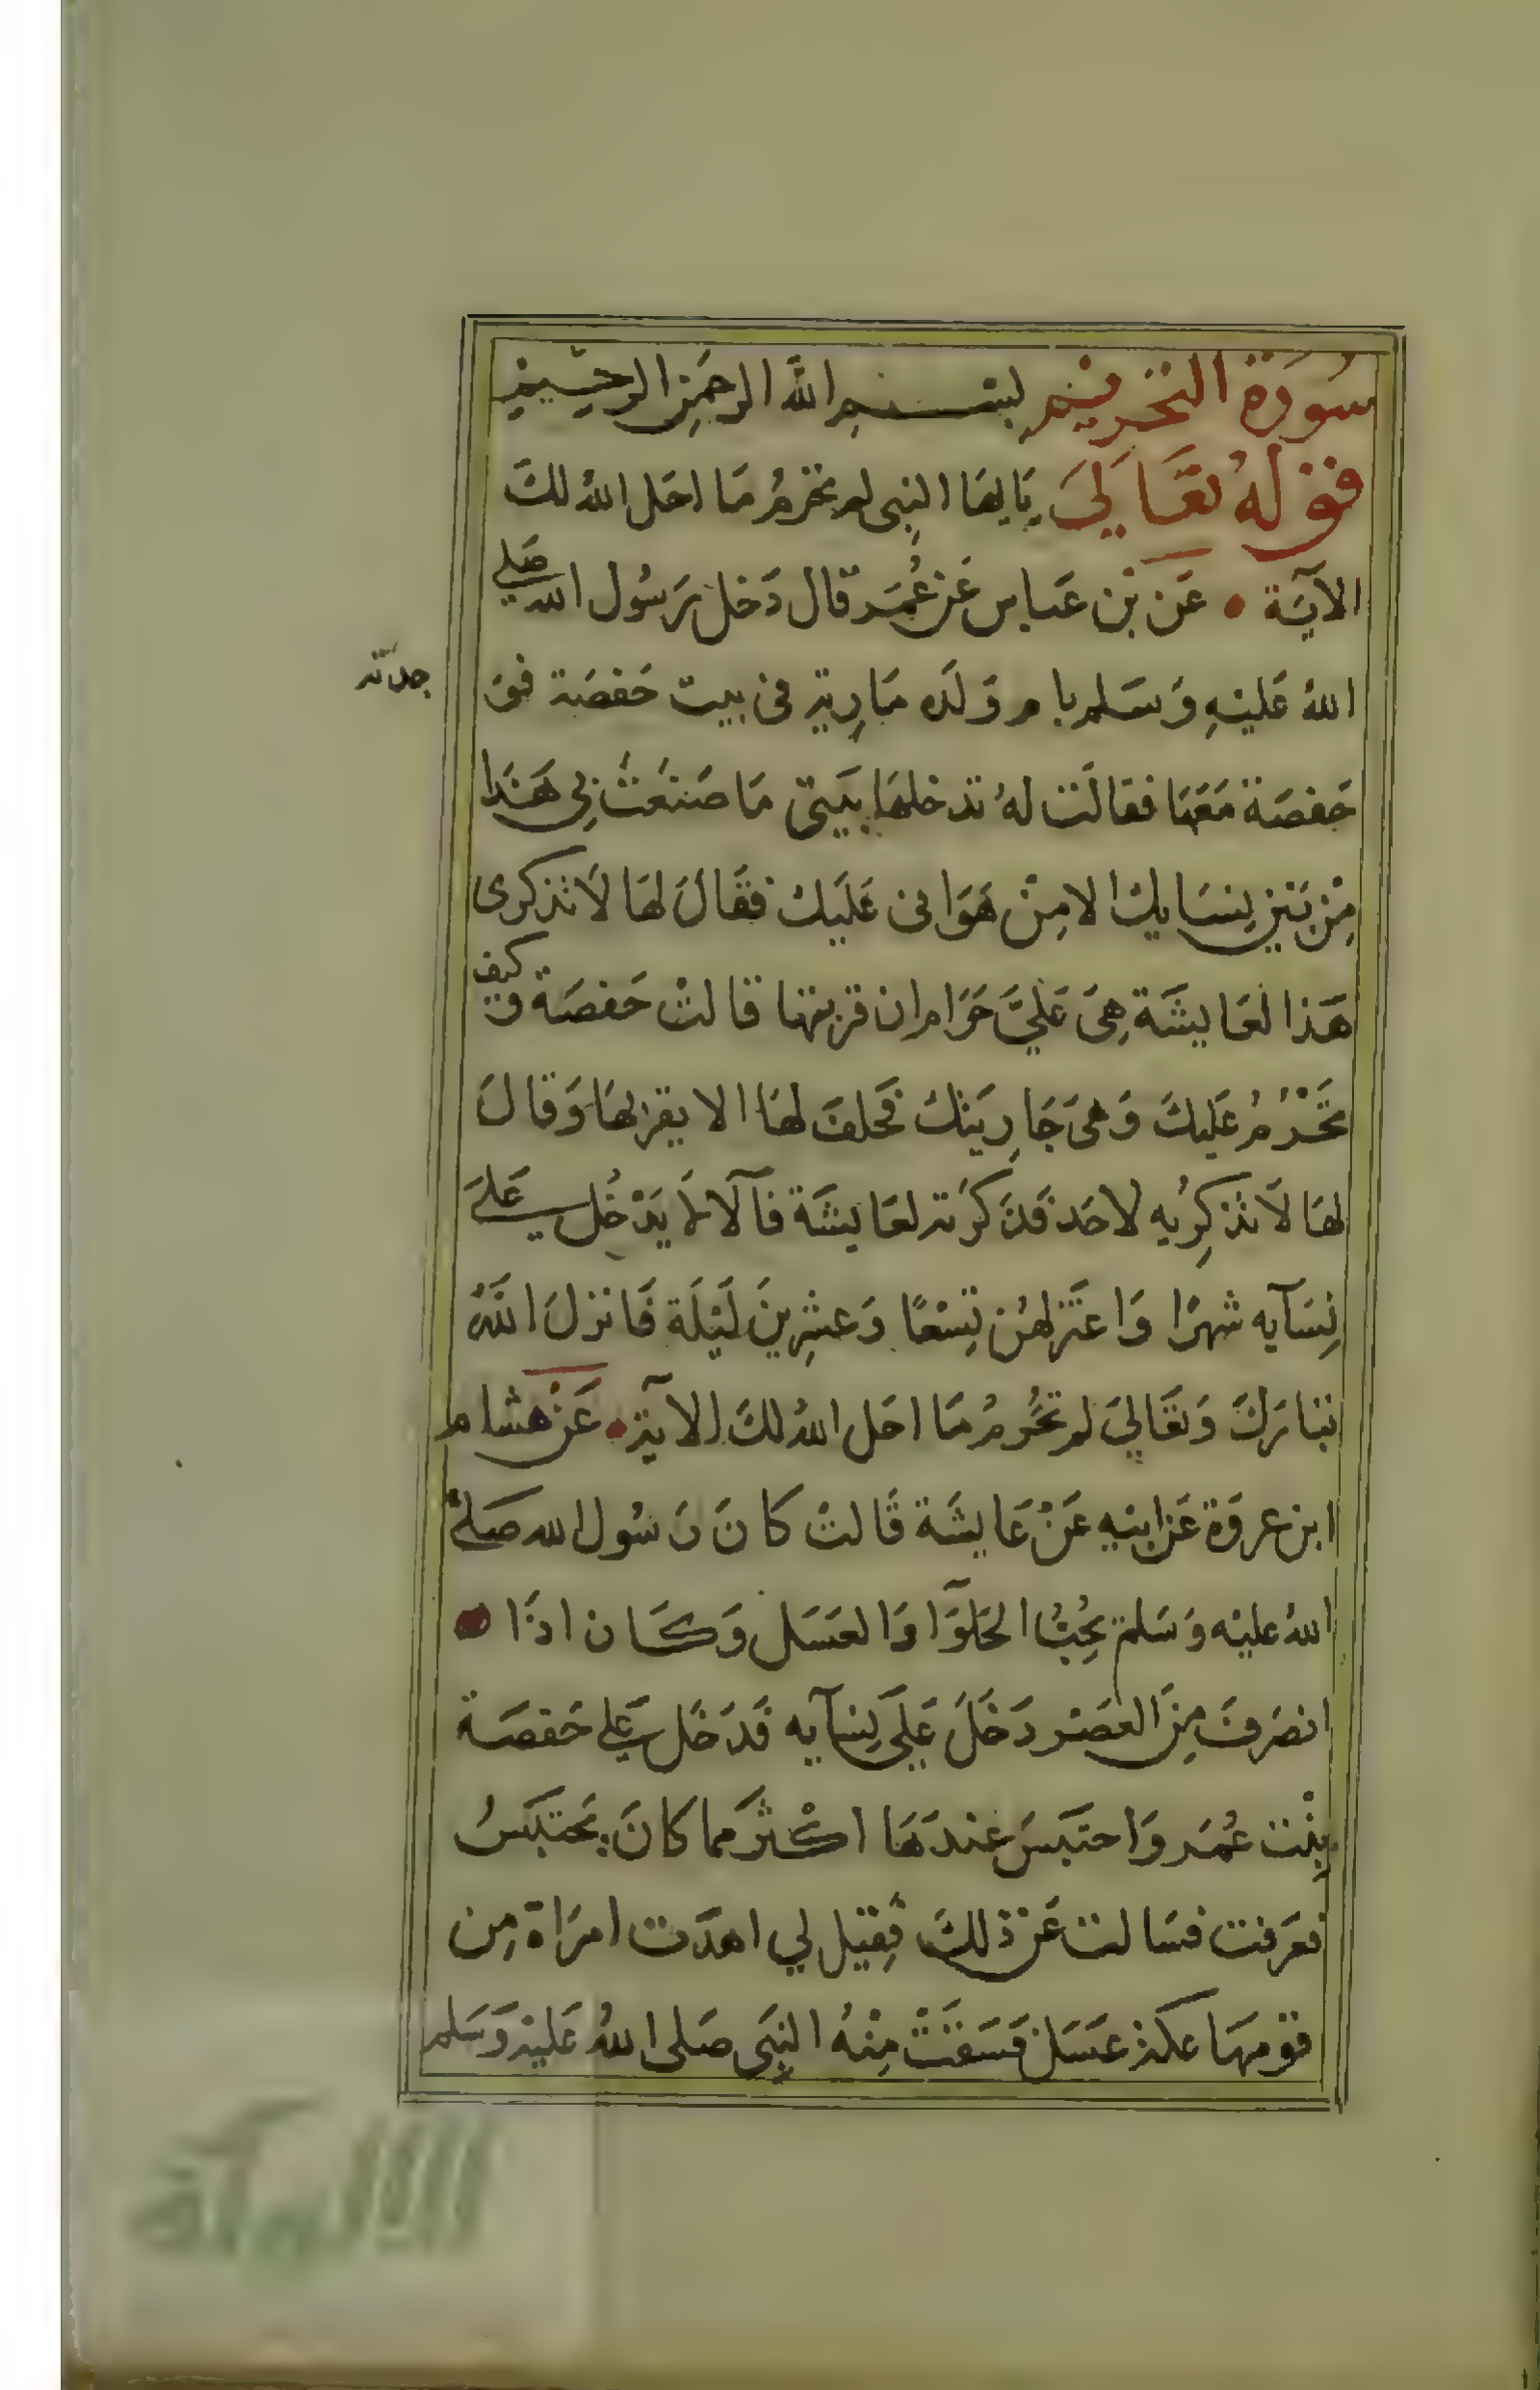 سُورَة التحريم بسم الله الرحمن الرحيم
قوله تعَالَى يَايها النبى لم تحرمُ مَا احَل اللهُ لكَ
الآيَة • عَن بن عَباس عَن عُمَر قال دَخل رَسُول الله صَلى
اللهُ عَليْهِ وَسَلم بام وَلَده مَارِية فى بيت حَفصَة فو
جدته
حَفصَة مَعَهَا فقالَت لهُ تدخلهَا بَيتى مَا صَنَعْتَ بِى هَذَا
مِنْ بَين نِسَايك الا مِنْ هَوَانى عَلَيك فقَالَ لهَا لَا تذكرى
هَذا لعَايشَة هِىَ عَليَّ حَرَام ان قربتها قالتْ حَفصَة وكيف
تَحْرُمُ عَليكَ وَهىَ جَارِيَتك فحَلفَ لهَا الا يقربهَا وَقالَ
لهَا لَا تذكِريه لاحَد فذَكرَته لعَايشَة فآلَا لا يَدْخُل عَلَى
نِسَآيه شهرًا وَاعتَزلهُن تِسْعًا وَعشرِينَ لَيْلَة فَانزلَ اللهُ
تبارَكَ وَتعَالِى لم تحُرمُ مَا احَل اللهُ لكَ الآية • عَنْ هشام
ابن عروَة عَن ابيه عَنْ عَايشَة قَالتْ كانَ رَسُول الله صَلى
اللهُ عليْه وَسَلم يُحِبُّ الحَلوَآ وَالعسَل وَكَان اذَا •
انصَرفَ مِنَ العَصْر دَخَلَ عَلَى نِسآيه فَدَخَل عَلى حَفصَة
بِنْت عُمَر وَاحتَبسَ عندَهَا اكْثرَ مما كانَ يَحتبَسُ
فعَرفت فسَالت عَن ذلكَ فقِيل لي اهدَت امرَاة مِن
قومهَا عكة عَسَل فسَقَتْ مِنْهُ النبَى صَلى اللهُ عَليْه وَسَلم